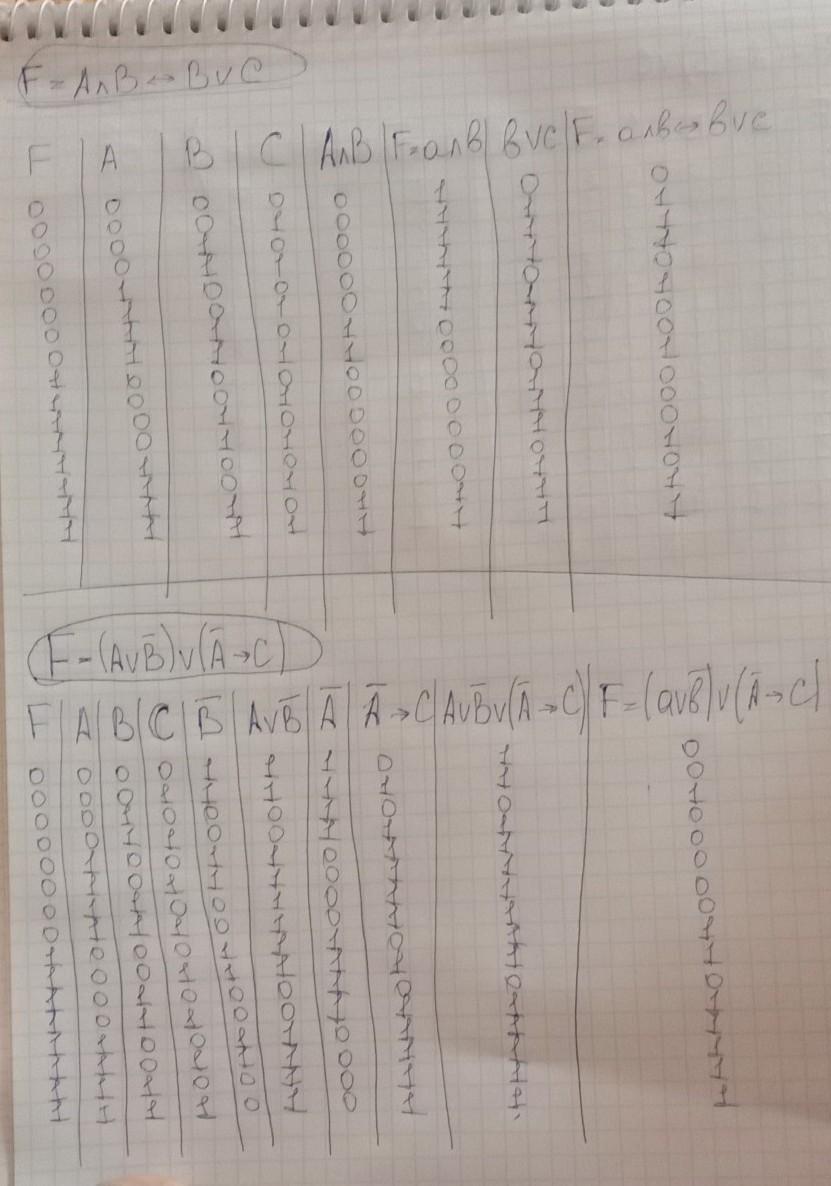 F = A∧B ↔ B∨C
F | A | B | C | A∧B | F=a∧B | B∨C | F= a∧B↔B∨C
0 0 0 0 0 1 0 0
0 0 0 1 0 1 1 1
0 0 1 0 0 1 1 1
0 0 1 1 0 1 1 1
0 1 0 0 0 1 0 0
0 1 0 1 0 1 1 1
0 1 1 0 1 0 1 0
0 1 1 1 1 0 1 0
1 0 0 0 0 0 0 1
1 0 0 1 0 0 1 0
1 0 1 0 0 0 1 0
1 0 1 1 0 0 1 0
1 1 0 0 0 0 0 1
1 1 0 1 0 0 1 0
1 1 1 0 1 1 1 1
1 1 1 1 1 1 1 1
F=(A∨B̄)∨(Ā→C)
F | A | B | C | B̄ | A∨B̄ | Ā | Ā→C | A∨B̄∨(Ā→C) | F=(a∨B̄)∨(Ā→C)
0 0 0 0 1 1 1 0 1 0
0 0 0 1 1 1 1 1 1 0
0 0 1 0 0 0 1 0 0 1
0 0 1 1 0 0 1 1 1 0
0 1 0 0 1 1 0 1 1 0
0 1 0 1 1 1 0 1 1 0
0 1 1 0 0 1 0 1 1 0
0 1 1 1 0 1 0 1 1 0
1 0 0 0 1 1 1 0 1 1
1 0 0 1 1 1 1 1 1 1
1 0 1 0 0 0 1 0 0 0
1 0 1 1 0 0 1 1 1 1
1 1 0 0 1 1 0 1 1 1
1 1 0 1 1 1 0 1 1 1
1 1 1 0 0 1 0 1 1 1
1 1 1 1 0 1 0 1 1 1